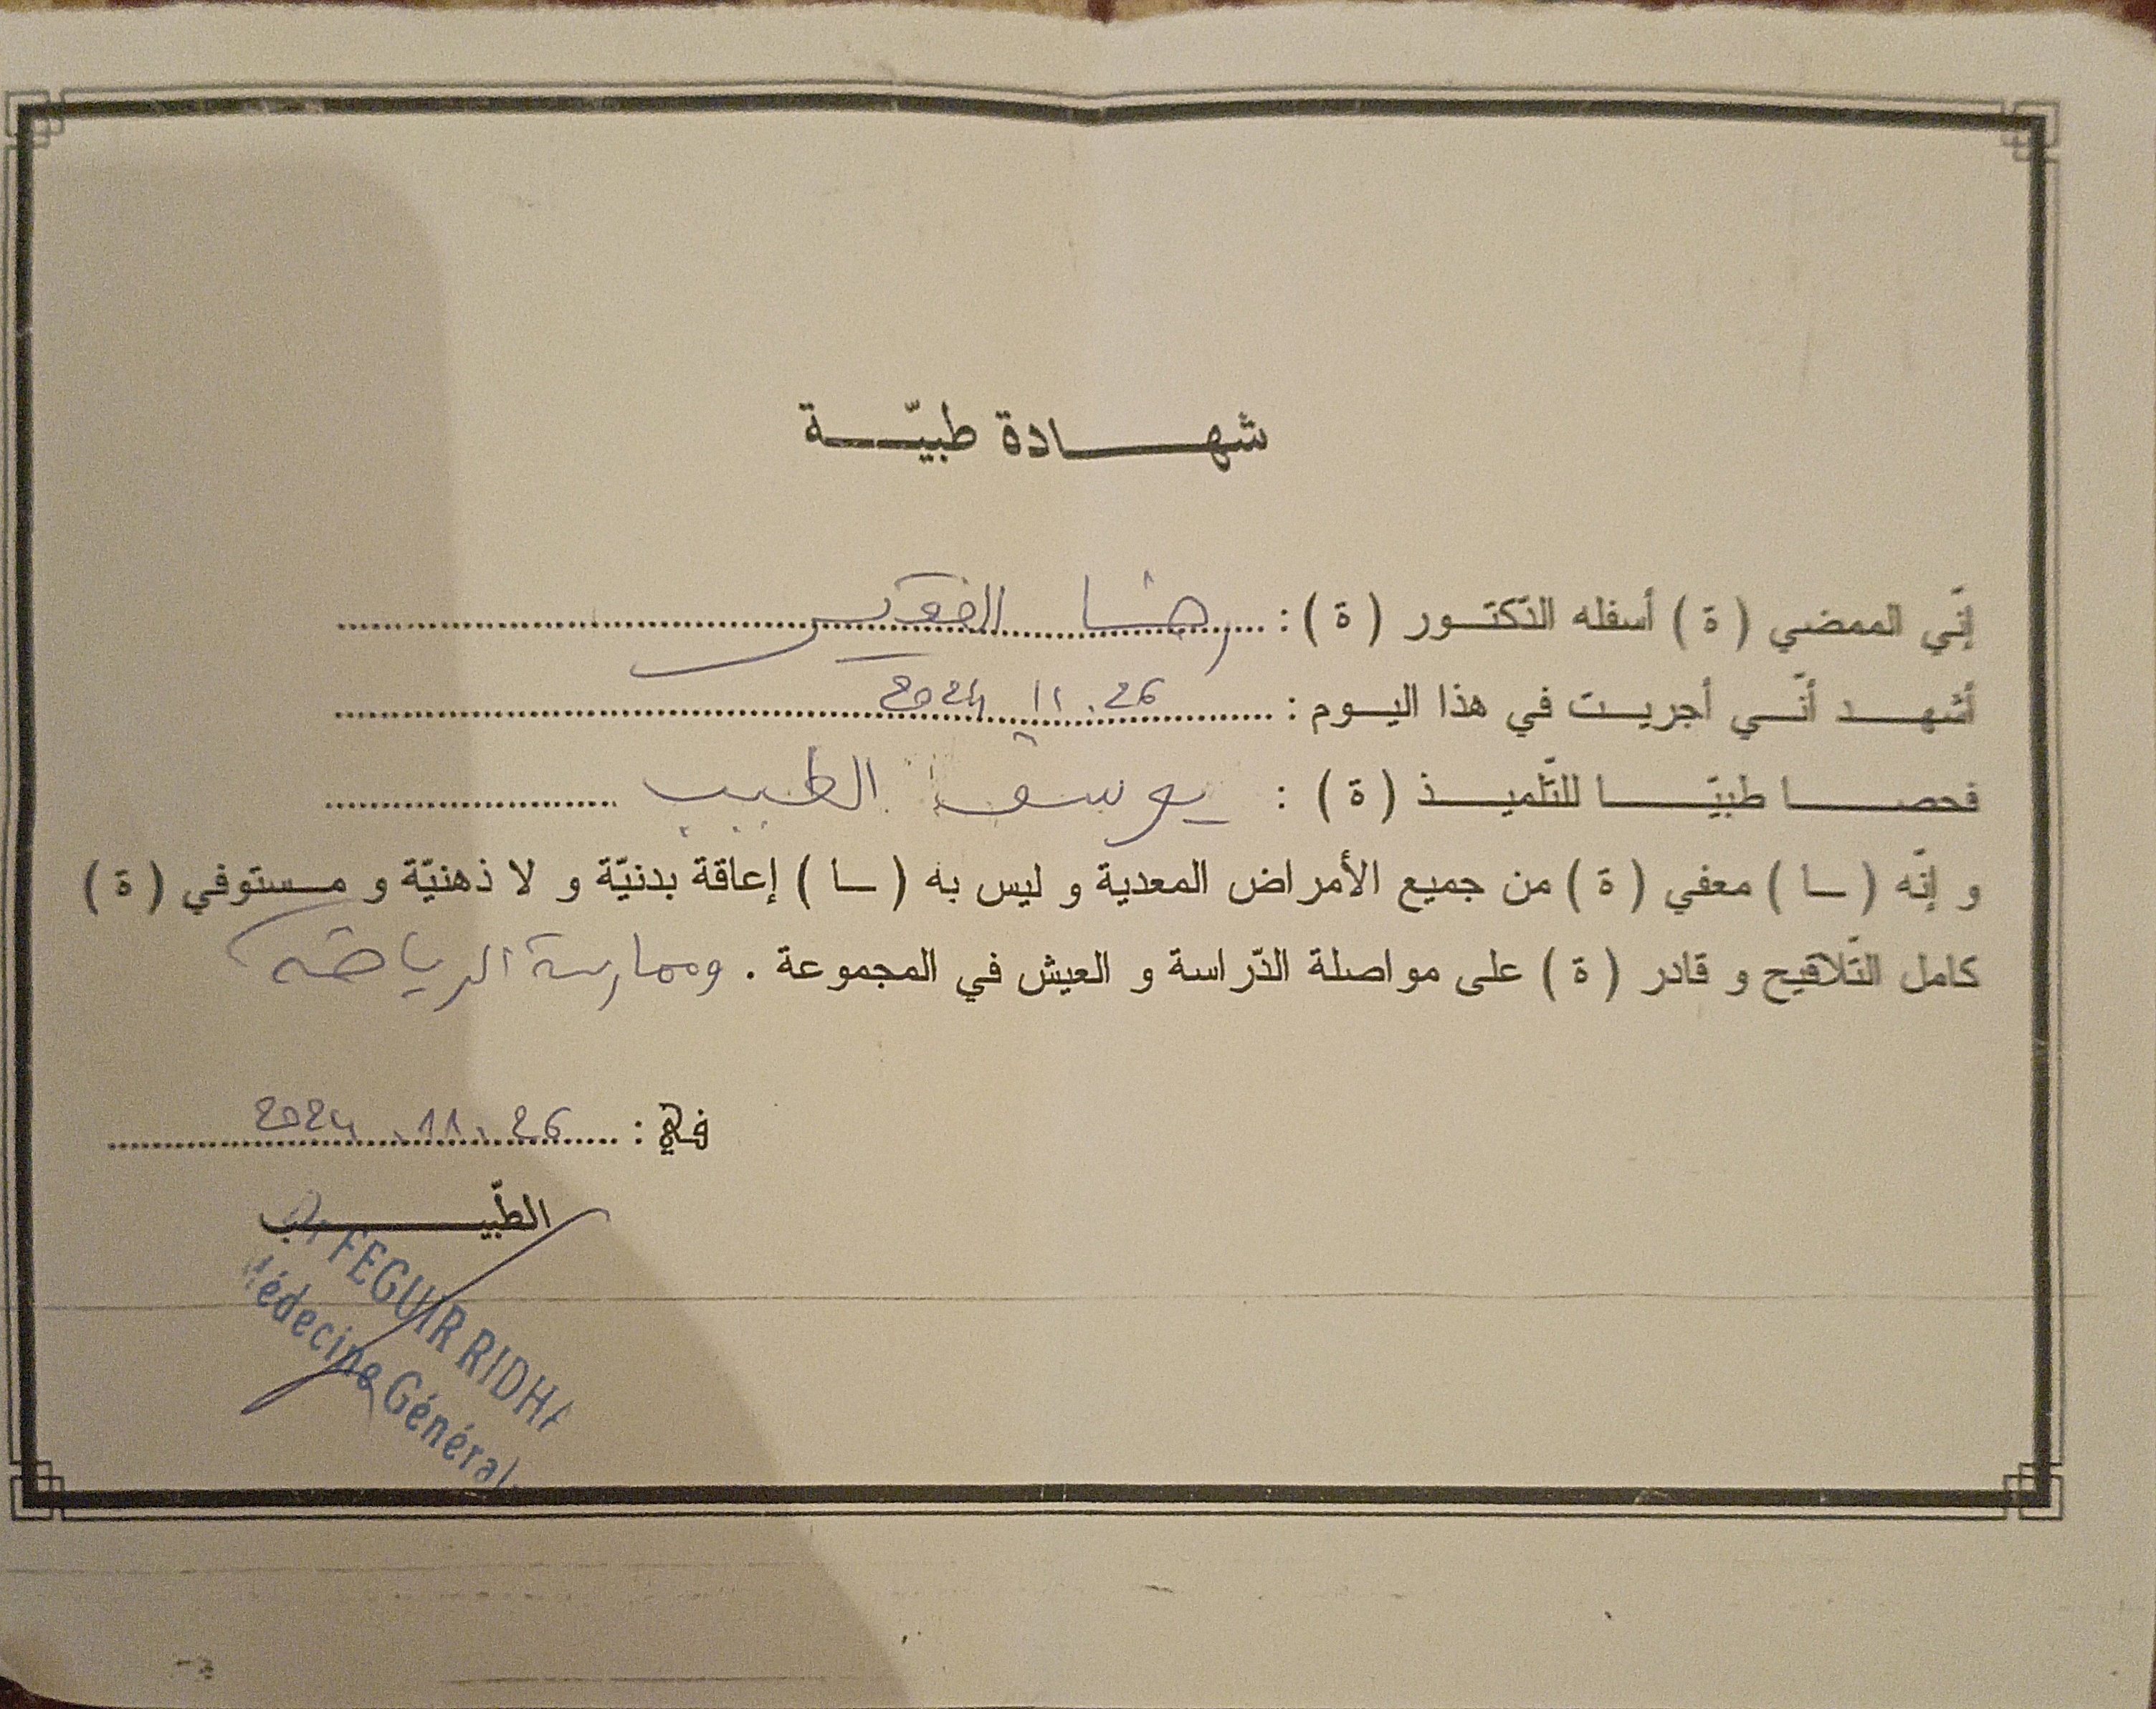 شهادة طبيّة
إنّي الممضي (ة) أسفله الدّكتور (ة) : رضا الفقير
أشهد أنّي أجريت في هذا اليوم : 26. 11 2024
فحصا طبيّا للتّلميذ (ة) : يوسف الطبيب
و إنّه (ـا) معفي (ة) من جميع الأمراض المعدية و ليس به (ـا) إعاقة بدنيّة و لا ذهنيّة و مستوفي (ة)
كامل التّلاقيح و قادر (ة) على مواصلة الدّراسة و العيش في المجموعة . وممارسة الرياضة
في : 26. 11. 2024
الطّبيب
Dr FEGUIR RIDHA
Médecine Général